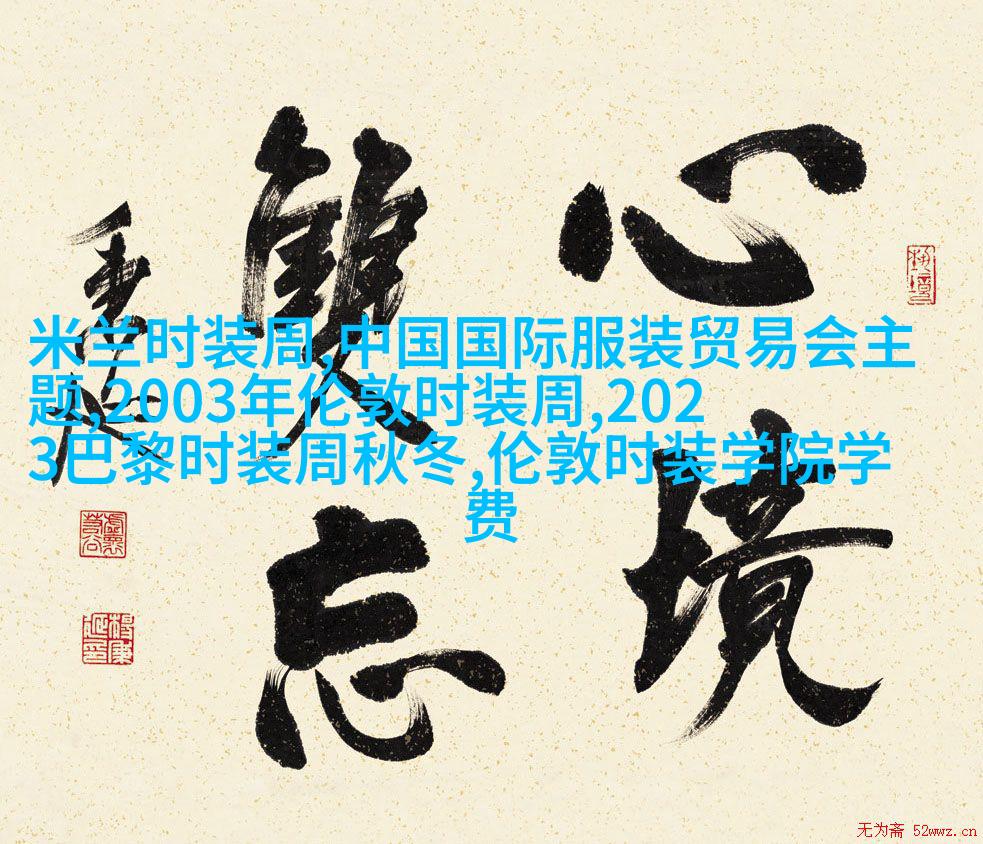 心境
雙忘
米兰时装周,中国国际服装贸易会主
题,2003年伦敦时装周,202
3巴黎时装周秋冬,伦敦时装学院学
费
无为斋 52wwz.cn